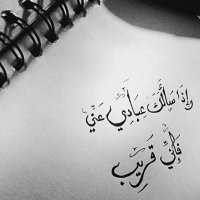 وَإِذَا سَأَلَكَ عِبَادِي عَنِّي
فَإِنِّي قَرِيب